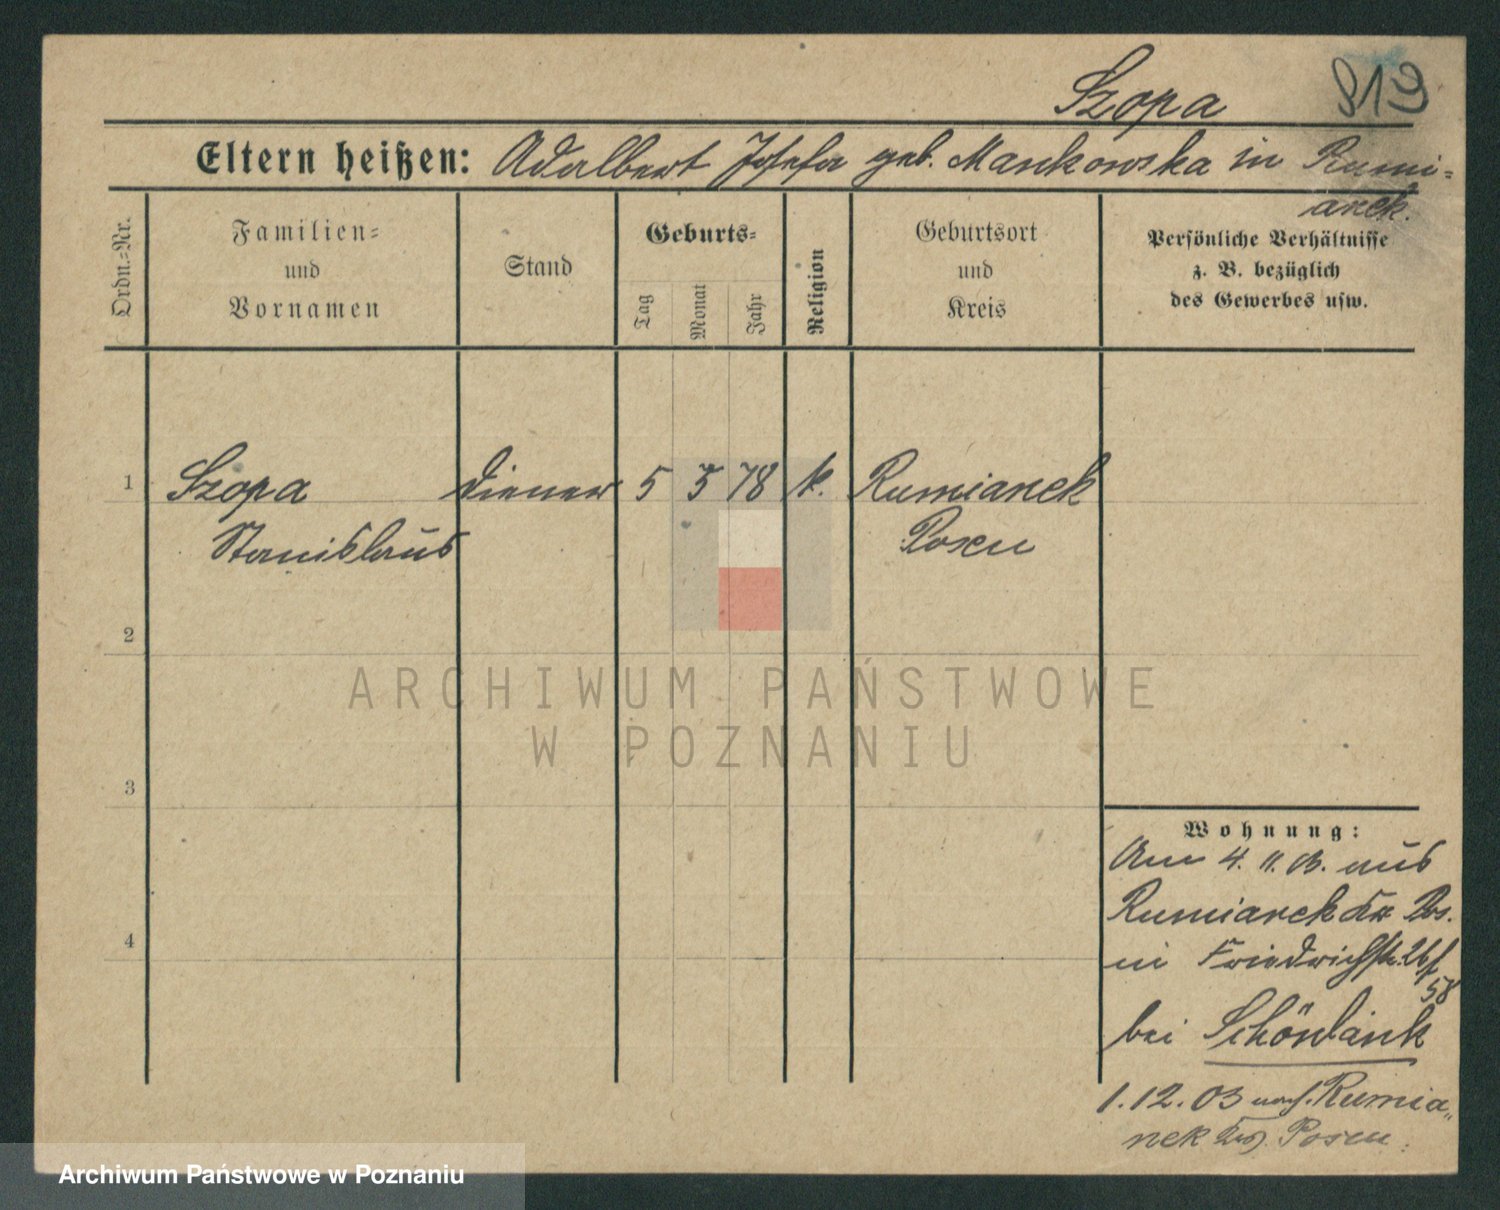 Szopa 919
Eltern heißen: Adalbert Josefa geb. Mankowska in Rumi-
anek.
Ordn.-Nr.
Familien-
und
Vornamen
Stand
Geburts-
Tag
Monat
Jahr
Religion
Geburtsort
und
Kreis
Persönliche Verhältnisse
z. B. bezüglich
des Gewerbes usw.
1 Szopa Diener 5 5 78 k. Rumianek
Stanislaus Posen
2
ARCHIWUM PAŃSTWOWE
W POZNANIU
3
Wohnung:
Am 4. 11. 03. aus
Rumianek Kr Pos.
4
in Friedrichstr. 26/
58
bei Schönbank
1.12.03 nach Rumia-
nek Krs. Posen.
Archiwum Państwowe w Poznaniu